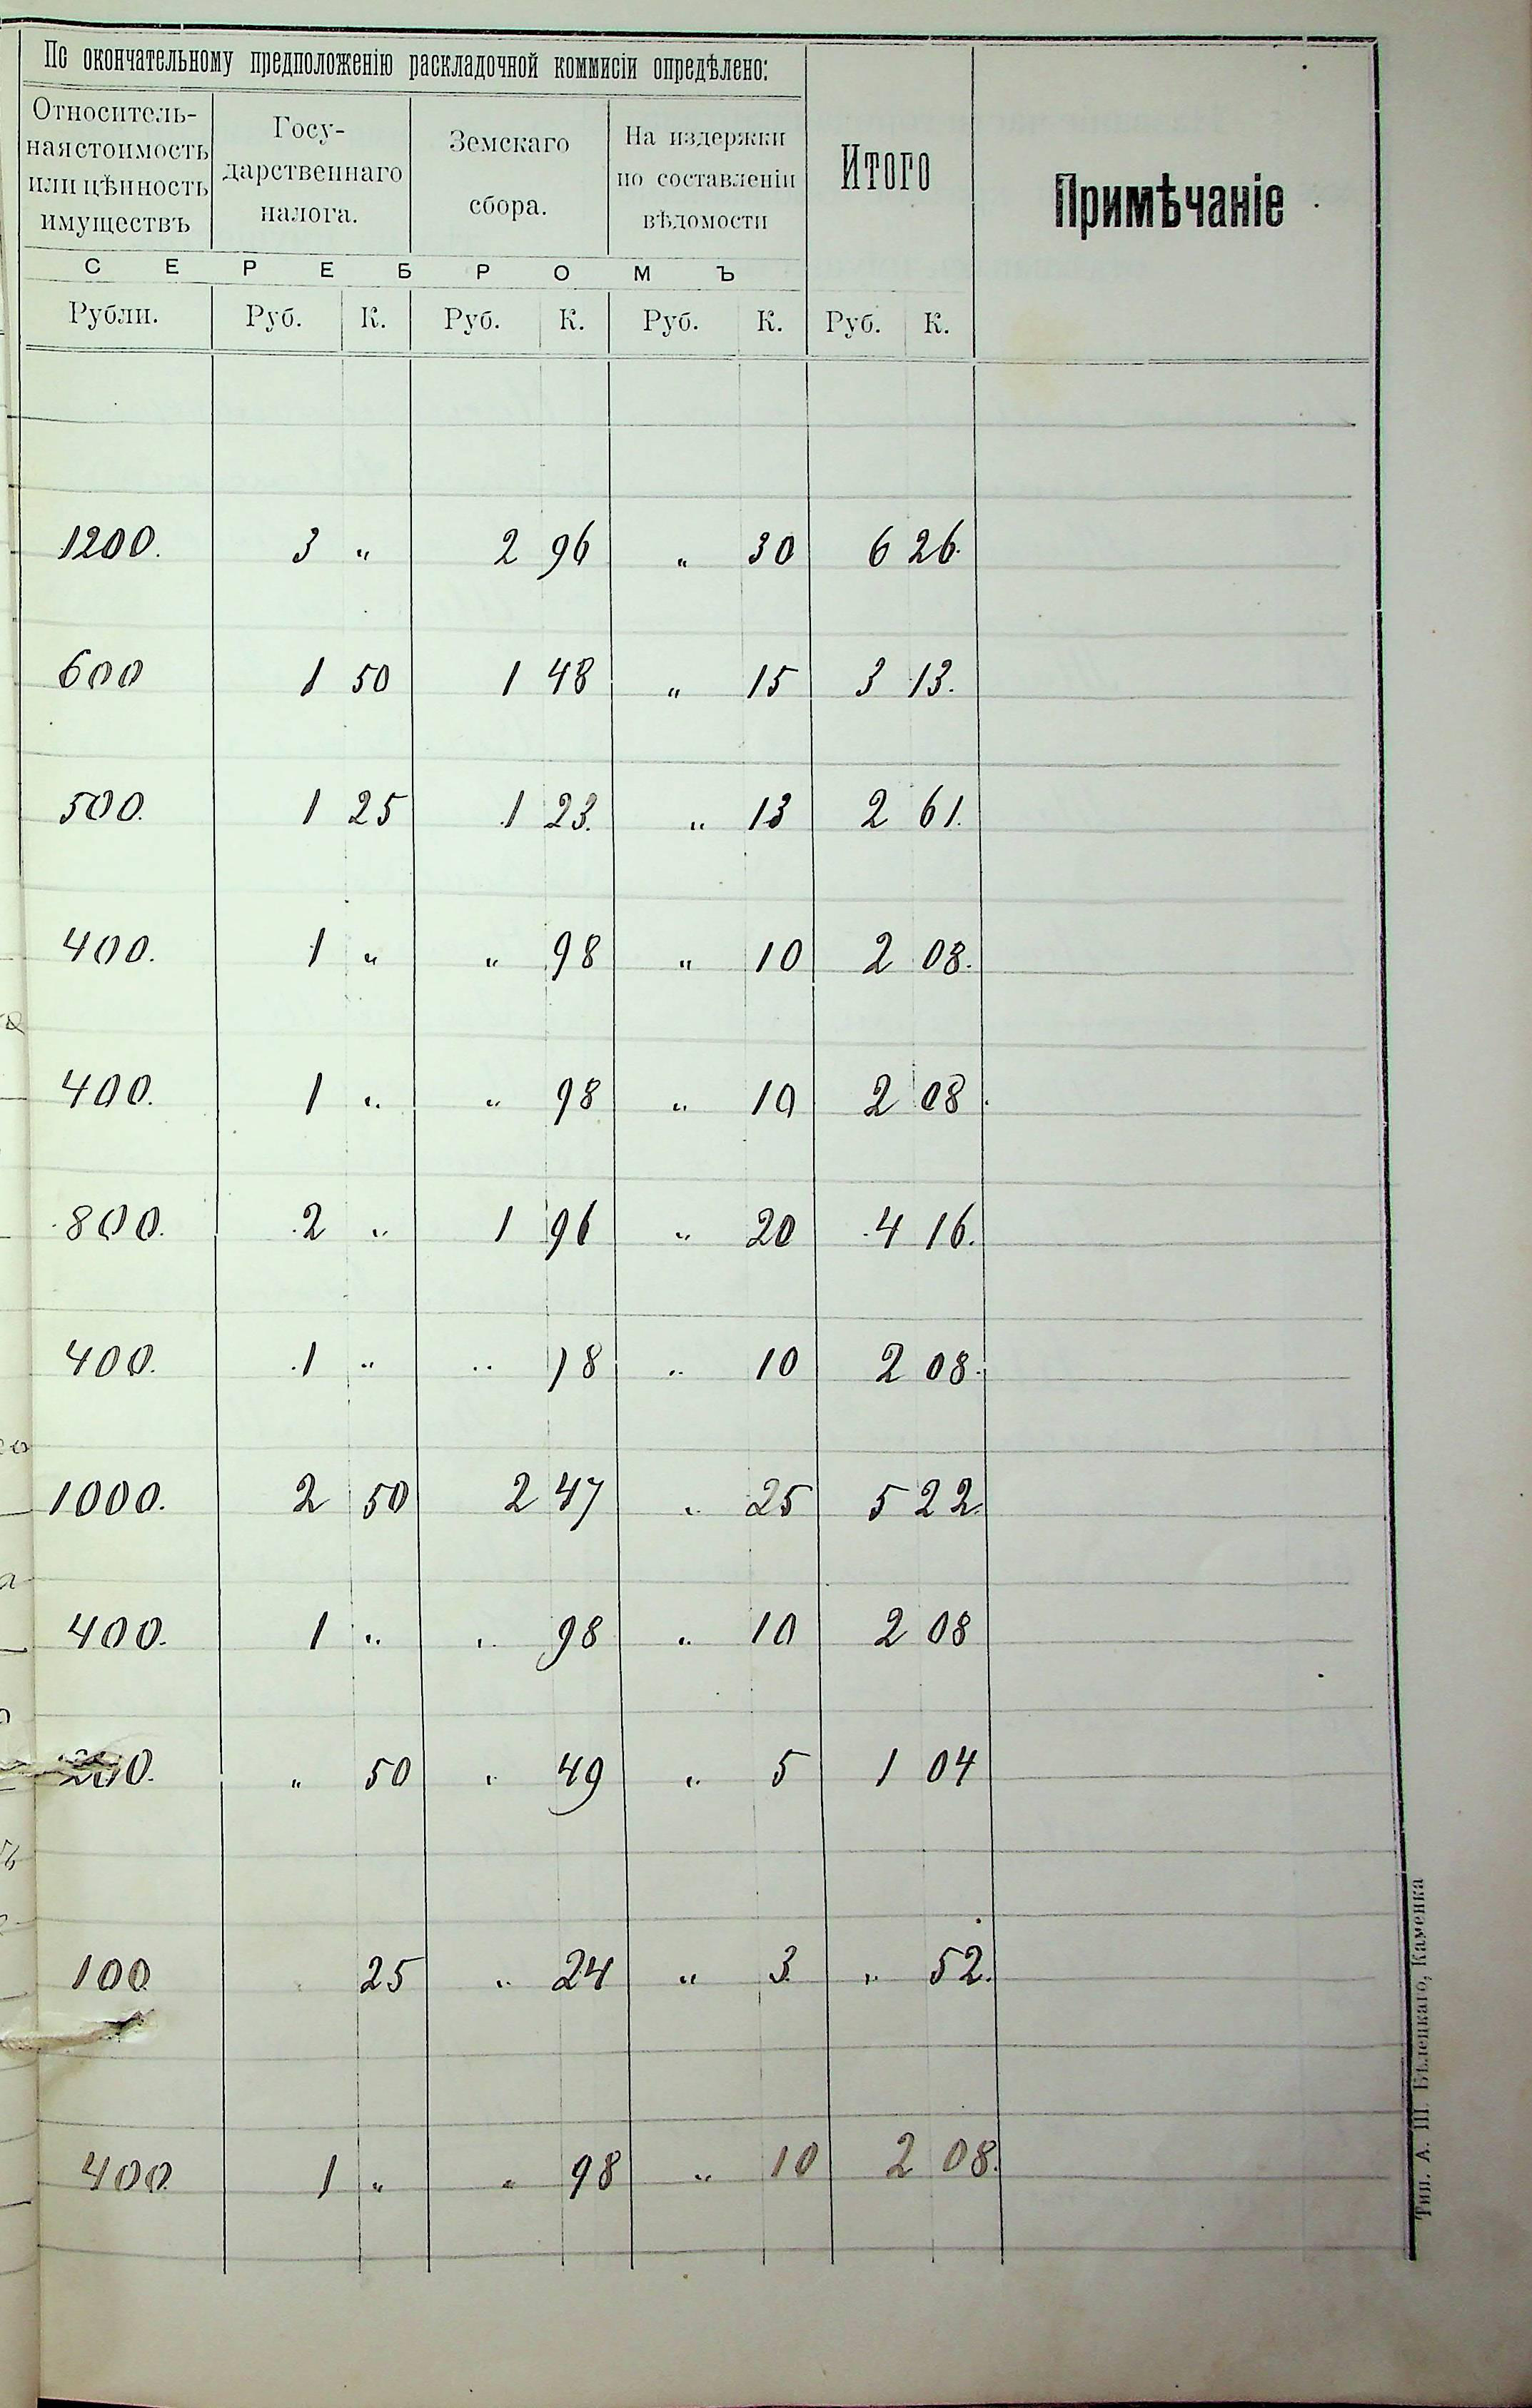 По окончательному предположенію раскладочной коммисіи опредѣлено:
Относитель-
ная стоимость
или цѣнность
имуществъ
Госу-
дарственнаго
налога.
Земскаго
сбора.
На издержки
по составленіи
вѣдомости
Итого
Примѣчаніе
С Е Р Е Б Р О М Ъ
Рубли. Руб. К. Руб. К. Руб. К. Руб. К.
1200. 3 " 2 96 " 30 6 26.
600 1 50 1 48 " 15 3 13.
500. 1 25 1 23. " 13 2 61.
400. 1 " " 98 " 10 2 08.
400. 1 " " 98 " 10 2 08.
800. 2 " 1 96 " 20 4 16.
400. 1 " " 98 " 10 2 08.
1000. 2 50 2 47 " 25 5 22.
400. 1 " " 98 " 10 2 08
200. " 50 " 49 " 5 1 04
100 25 " 24 " 3. " 52.
400 1 " " 98 " 10 2 08.
Тип. А. Ш. Бѣлецкаго, Каменка